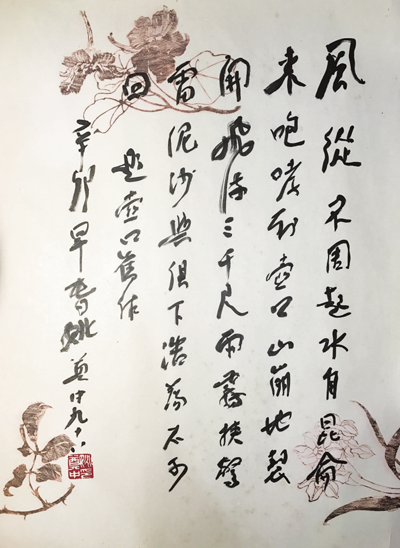 風從不周起水自昆侖
来咆哮到壺口山崩地裂
開飛濤三千尺雨霧挾驚
雷泥沙與俱下浩蕩不可
回
題壺口舊作
辛卯早春姚奠中九十八